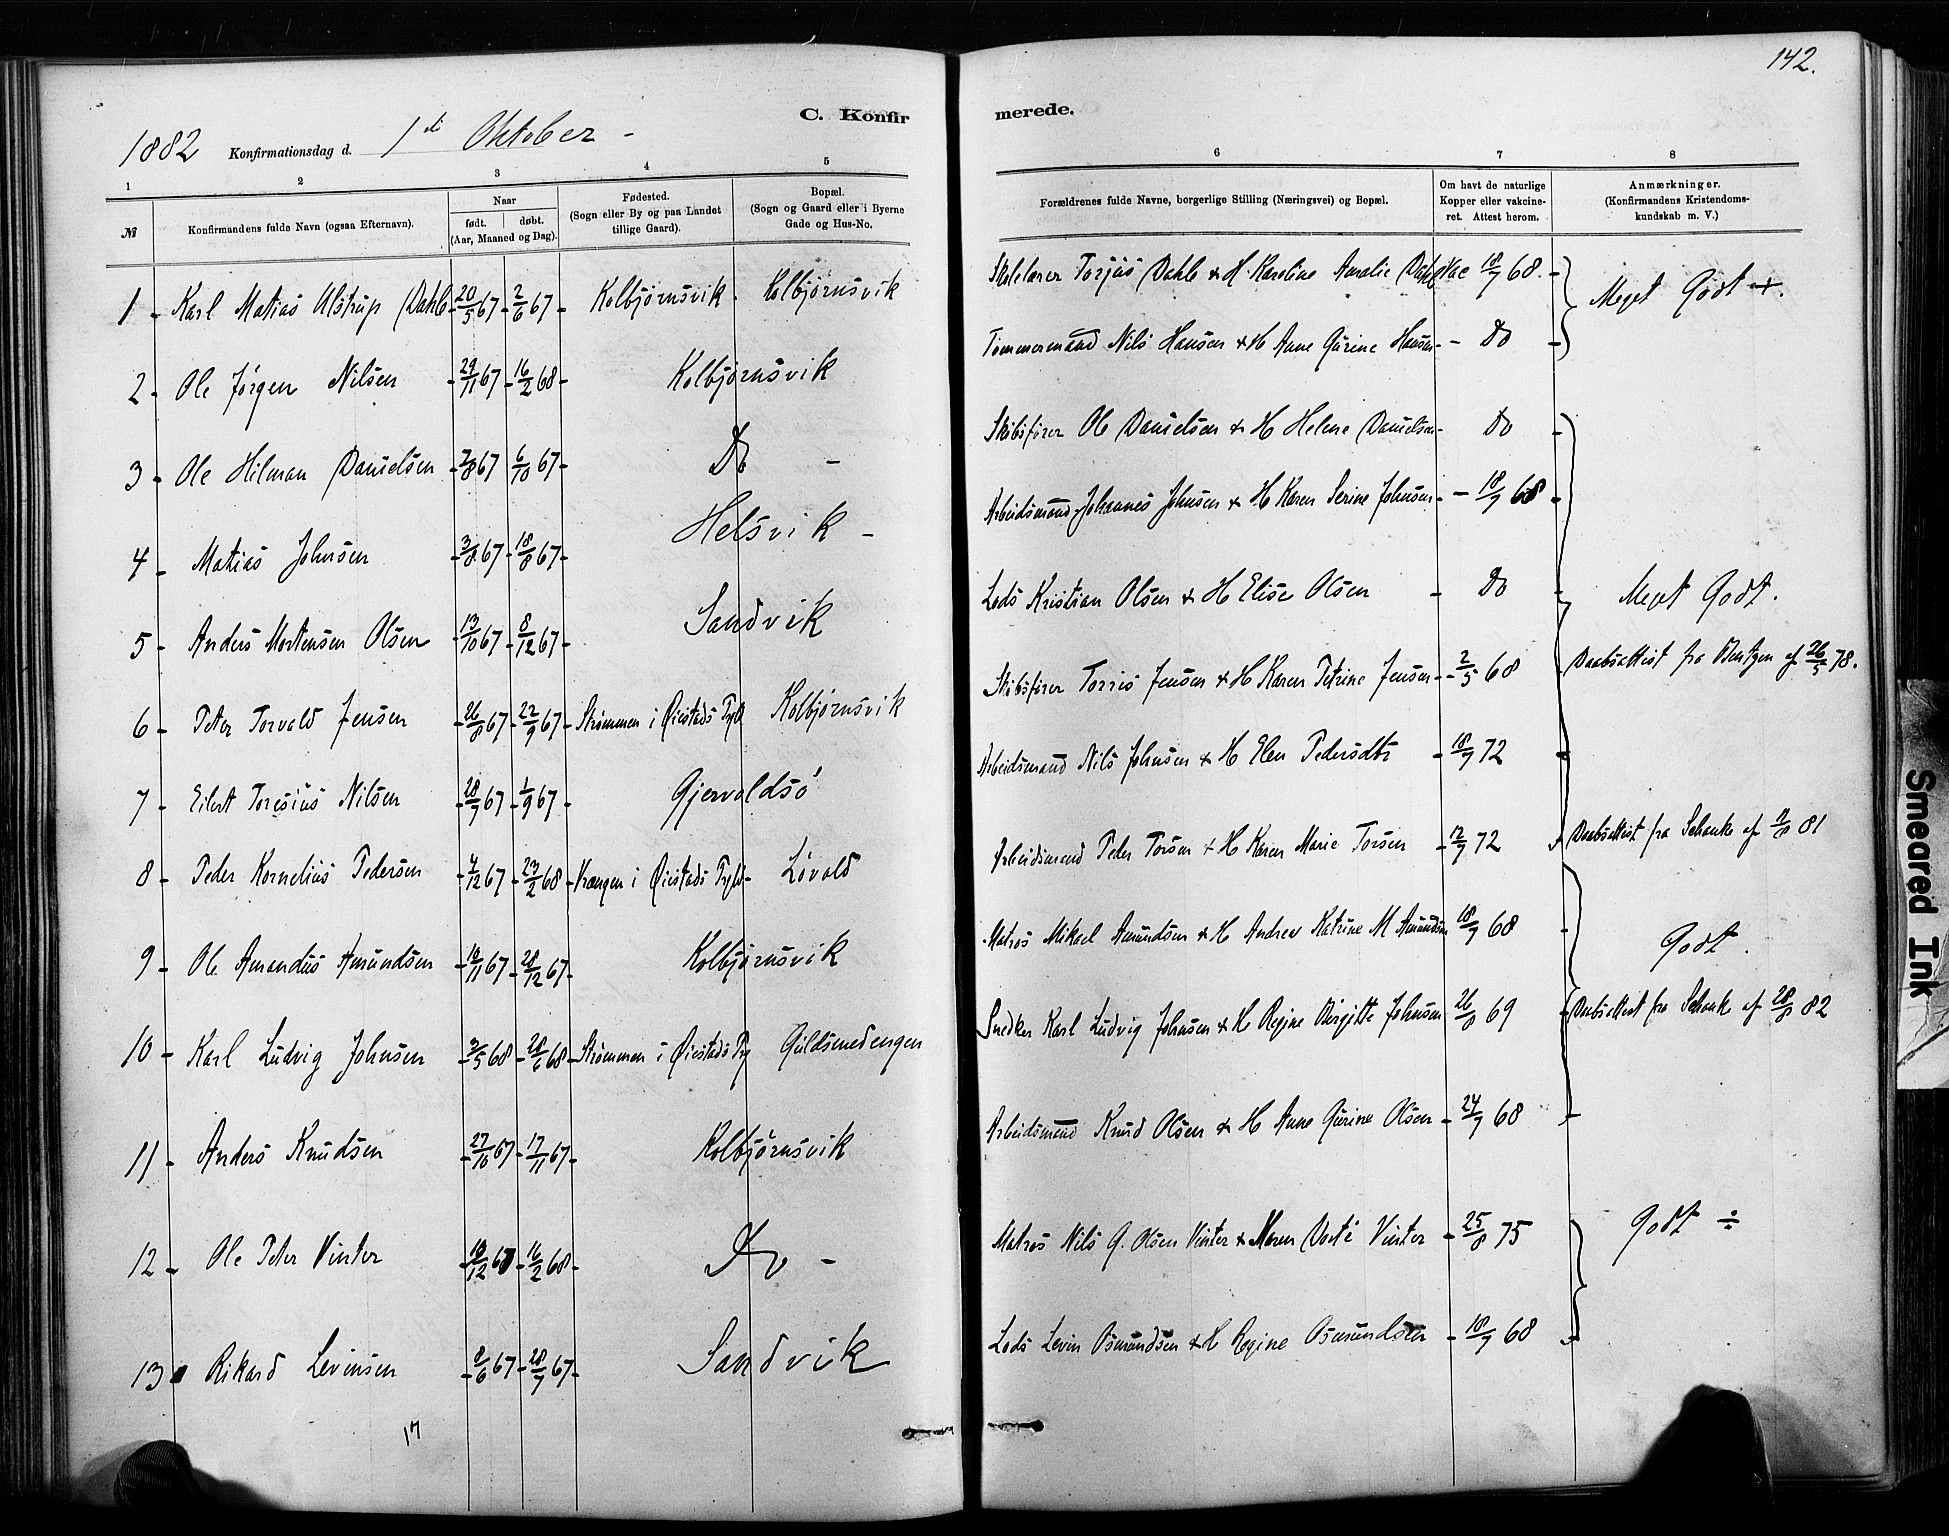 142.
C. Konfir merede.
1882 Konfirmationsdag d. 1ste Oktober -
1 2 3 4 5 6 7 8
№ Konfirmandens fulde Navn (ogsaa Efternavn). Naar født. døbt. (Aar, Maaned og Dag). Fødested. (Sogn eller By og paa Landet tillige Gaard). Bopæl. (Sogn og Gaard eller i Byerne Gade og Hus-No. Forældrenes fulde Navne, borgerlige Stilling (Næringsvei) og Bopæl. Om havt de naturlige Kopper eller vakcineret. Attest herom. Anmærkninger. (Konfirmandens Kristendomskundskab m. V.)
1 - Karl Matias Ulstrup (Dahl - 20/5 67 - 2/6 67 - Kolbjørnsvik - Kolbjørnsvik Skolelærer Torjus Dahl & H. Karoline Amalie Dahl Vac 18/7 68 - Meget Godt +.
2 - Ole Jørgen Nilsen - 29/11 67 - 16/2 68 - Kolbjørnsvik Tømmermand Nils Hansen & H Anne Gurine Hansen - - Do -
3 - Ole Hilman Danielsen - 7/8 67 - 6/10 67 - Do - Skibsfører Ole Danielsen & H Helene Danielsen - Do -
4 - Matias Johnsen - 3/8 67 - 18/8 67 - Helsvik - Arbeidsmand Johannes Johnsen & H Karen Serine Johnsen - - 18/7 68 -
5 - Anders Mortensen Olsen - 13/10 67 - 8/12 67 - Sandvik Lods Kristian Olsen & H Elise Olsen - Do - Meget Godt.
6 - Peter Torvald Jensen - 26/8 67 - 22/9 67 - Strømmen i Øiestads Kolbjørnsvik Skibsfører Torris Jensen & H Karen Petrine Jensen - 2/5 68 Daabsattest fra Bentzen af 26/5 78.
7 - Eilert Toresius Nilsen - 28/7 67 - 1/9 67 - Gjervoldsø Arbeidsmand Nils Johnsen & H Elen Pedersdtr - 18/7 72 -
8 - Peder Kornelius Pedersen - 4/12 67 - 23/2 68 - Vrængen i Øiestads - Løvold Arbeidsmand Peder Torsen & H Karen Marie Torsen - 12/7 72 - Daabsattest fra Schanke af 11/8 81
9 - Ole Amandus Amundsen - 18/11 67 - 28/12 67 - Kolbjørnsvik Matros Mikael Amundsen & H Andrea Katrine M Amundsen 18/7 68 - Godt.
10 - Karl Ludvig Johnsen - 3/5 68 - 28/6 68 - Strømmen i Øiestads Guldsmedengen Snedker Karl Ludvig Johnsen & H Regine Birgitte Johnsen 26/8 69 - Daabsattest fra Schanke af 28/8 82
11 - Anders Knudsen - 27/10 67 - 17/11 67 - Kolbjørnsvik Arbeidsmand Knud Olsen & H Anne Gurine Olsen - 24/7 68 -
12 - Ole Peter Vinter - 18/12 67 - 16/2 68 - Do - Matros Nils G. Olsen Vinter & Maren Dorte Vinter - 25/8 75 Godt ÷
13 Rikard Levinsen - 2/6 67 - 28/7 67 - Sandvik Lods Levin Osmundsen & H Regine Osmundsen - 18/7 68 -
17
Smeared Ink